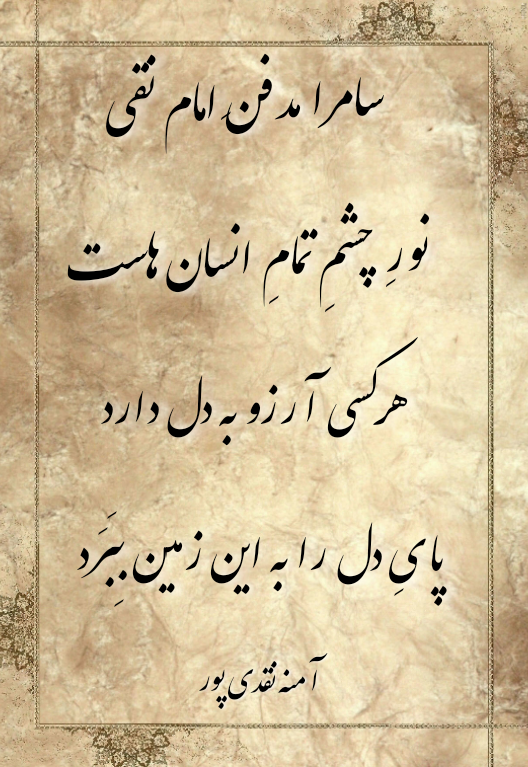 سامرا مدفنِ امام نقی
نورِ چشمِ تمامِ انسان هاست
هرکسی آرزو به دل دارد
پایِ دل را به این زمین بِبَرَد
آمنه نقدی پور